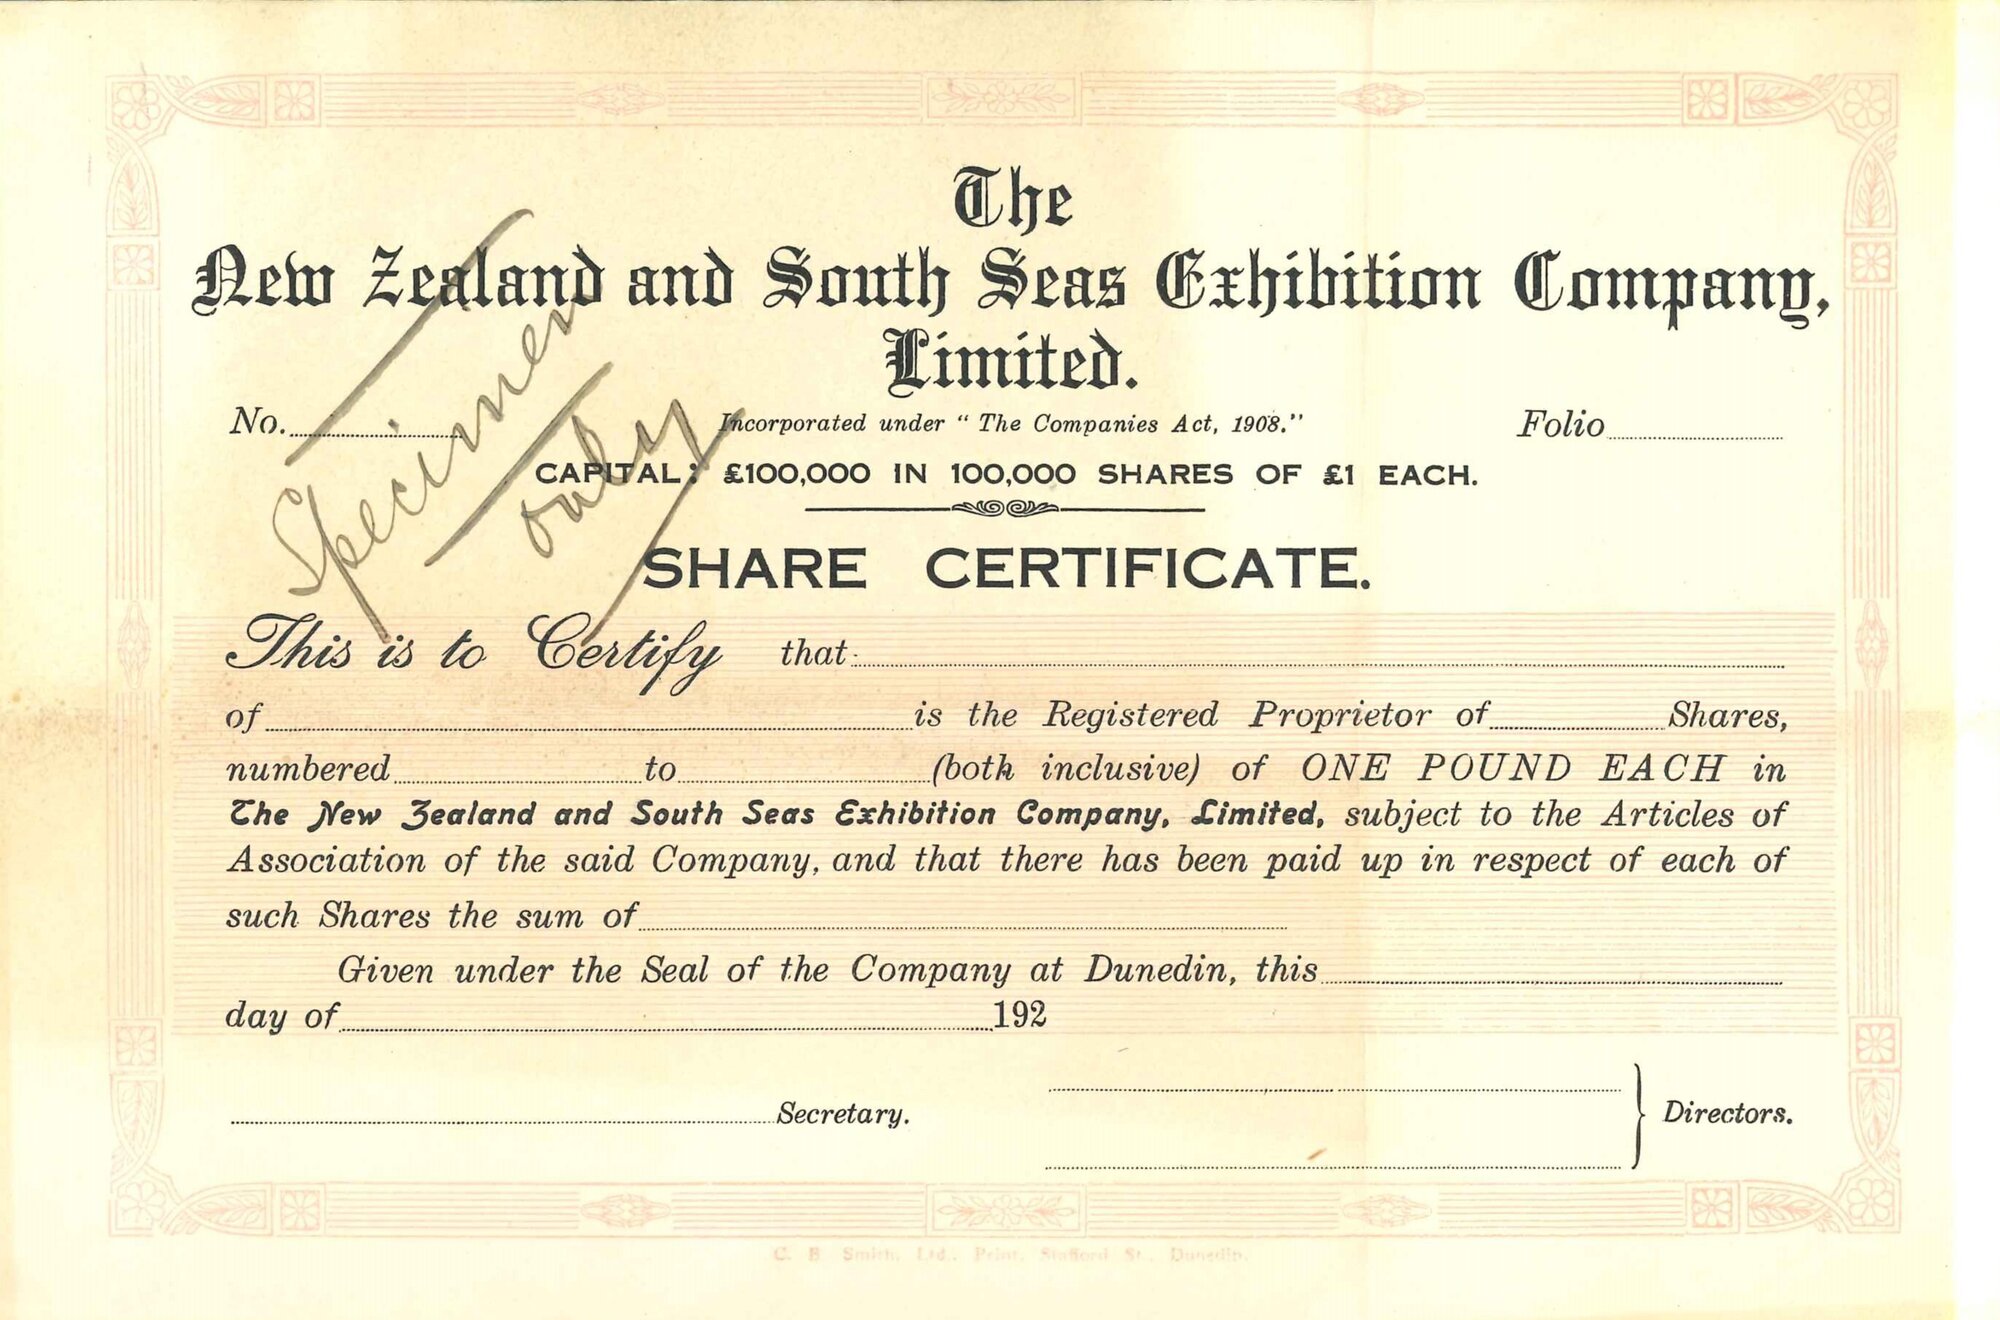 The
New Zealand and South Seas Exhibition Company,
Limited.
No.
Incorporated under "The Companies Act, 1908."
Folio
Specimen
only
CAPITAL: £100,000 IN 100,000 SHARES OF £1 EACH.
SHARE CERTIFICATE.
This is to Certify that
of is the Registered Proprietor of Shares,
numbered to (both inclusive) of ONE POUND EACH in
The New Zealand and South Seas Exhibition Company, Limited, subject to the Articles of
Association of the said Company, and that there has been paid up in respect of each of
such Shares the sum of
Given under the Seal of the Company at Dunedin, this
day of 192
Secretary.
Directors.
C. B. Smith, Ltd., Print, Stafford St., Dunedin.